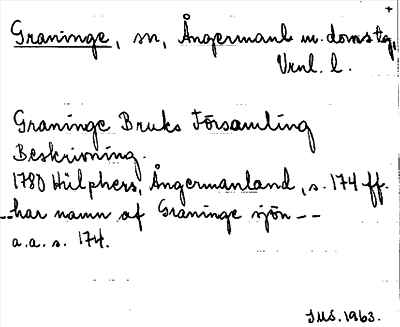 +
Graninge, sn, Ångermanl. m. domstg,
Vrnl. l.
Graninge Bruks Församling
Beskrivning.
1780 Hülphers, Ångermanland, s. 174 ff.
--har namn af Graninge sjön--
a.a. s. 174.
IMS. 1963.